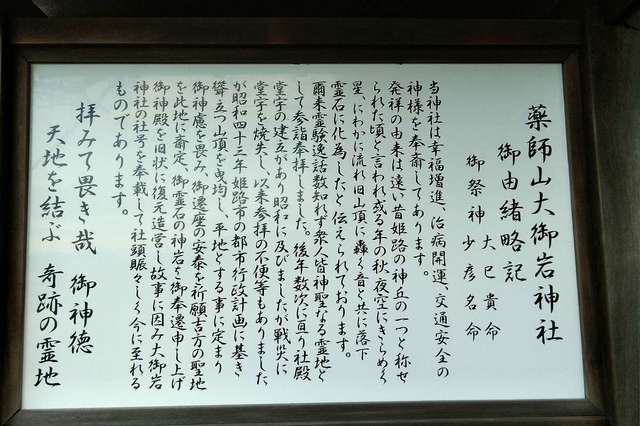 薬師山大御岩神社
御由緒略記
御祭神 大巳貴命
少彦名命
当神社は幸福増進、治病開運、交通安全の
神様を奉斎してあります。
発祥の由来は遠い昔姫路の神丘の一つと称せ
られた頃と言われ或る年の秋、夜空にきらめく
星 にわかに流れ旧山頂に轟く音と共に落下
霊石に化為したと伝えられております。
爾来霊験逸話数知れず衆人皆神聖なる霊地と
して参詣奉拝しました。後年数次に亘り社殿
堂宇の建立があり昭和に及びましたが戦災に
堂宇を焼失し、以来参拝の不便等もありました
が昭和四十三年姫路市の都市行政計画に基き
聳立つ山頂を曳均し、平地とする事に定まり
御神慮を畏み、御遷座の安泰を祈願吉方の聖地
を此地に斎定、御霊石の神岩を御奉遷申し上げ
御神殿を旧状に復元造営し故事に因み大御岩
神社の社号を奉載して社頭賑々しく今に至れる
ものであります。
拝みて畏き哉 御神徳
天地を結ぶ 奇跡の霊地